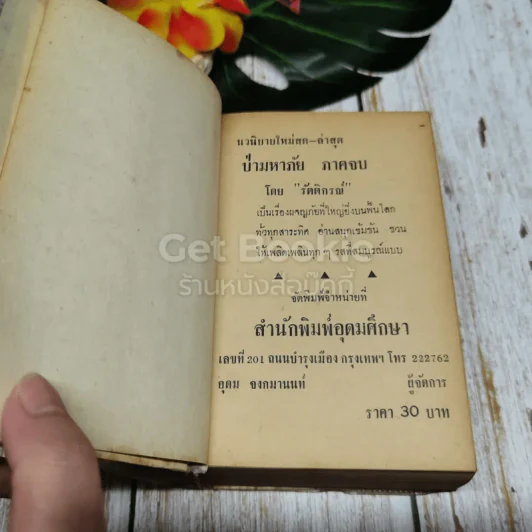 นวนิยายใหม่สุด–ล่าสุด
ป่ามหาภัย ภาคจบ
โดย "รัตติกรณ์"
เป็นเรื่องผจญภัยที่ใหญ่ยิ่งบนพื้นโลก
ทั่วทุกสาระทิศ อ่านสนุกเข้มข้น ชวน
ให้เพลิดเพลินทุก ๆ รสที่สมบูรณ์แบบ
Get Bookie
ร้านหนังสือบุ๊กกี้
จัดพิมพ์จำหน่ายที่
สำนักพิมพ์อุดมศึกษา
เลขที่ 201 ถนนบำรุงเมือง กรุงเทพฯ โทร 222762
อุดม จงกมานนท์ ผู้จัดการ
ราคา 30 บาท